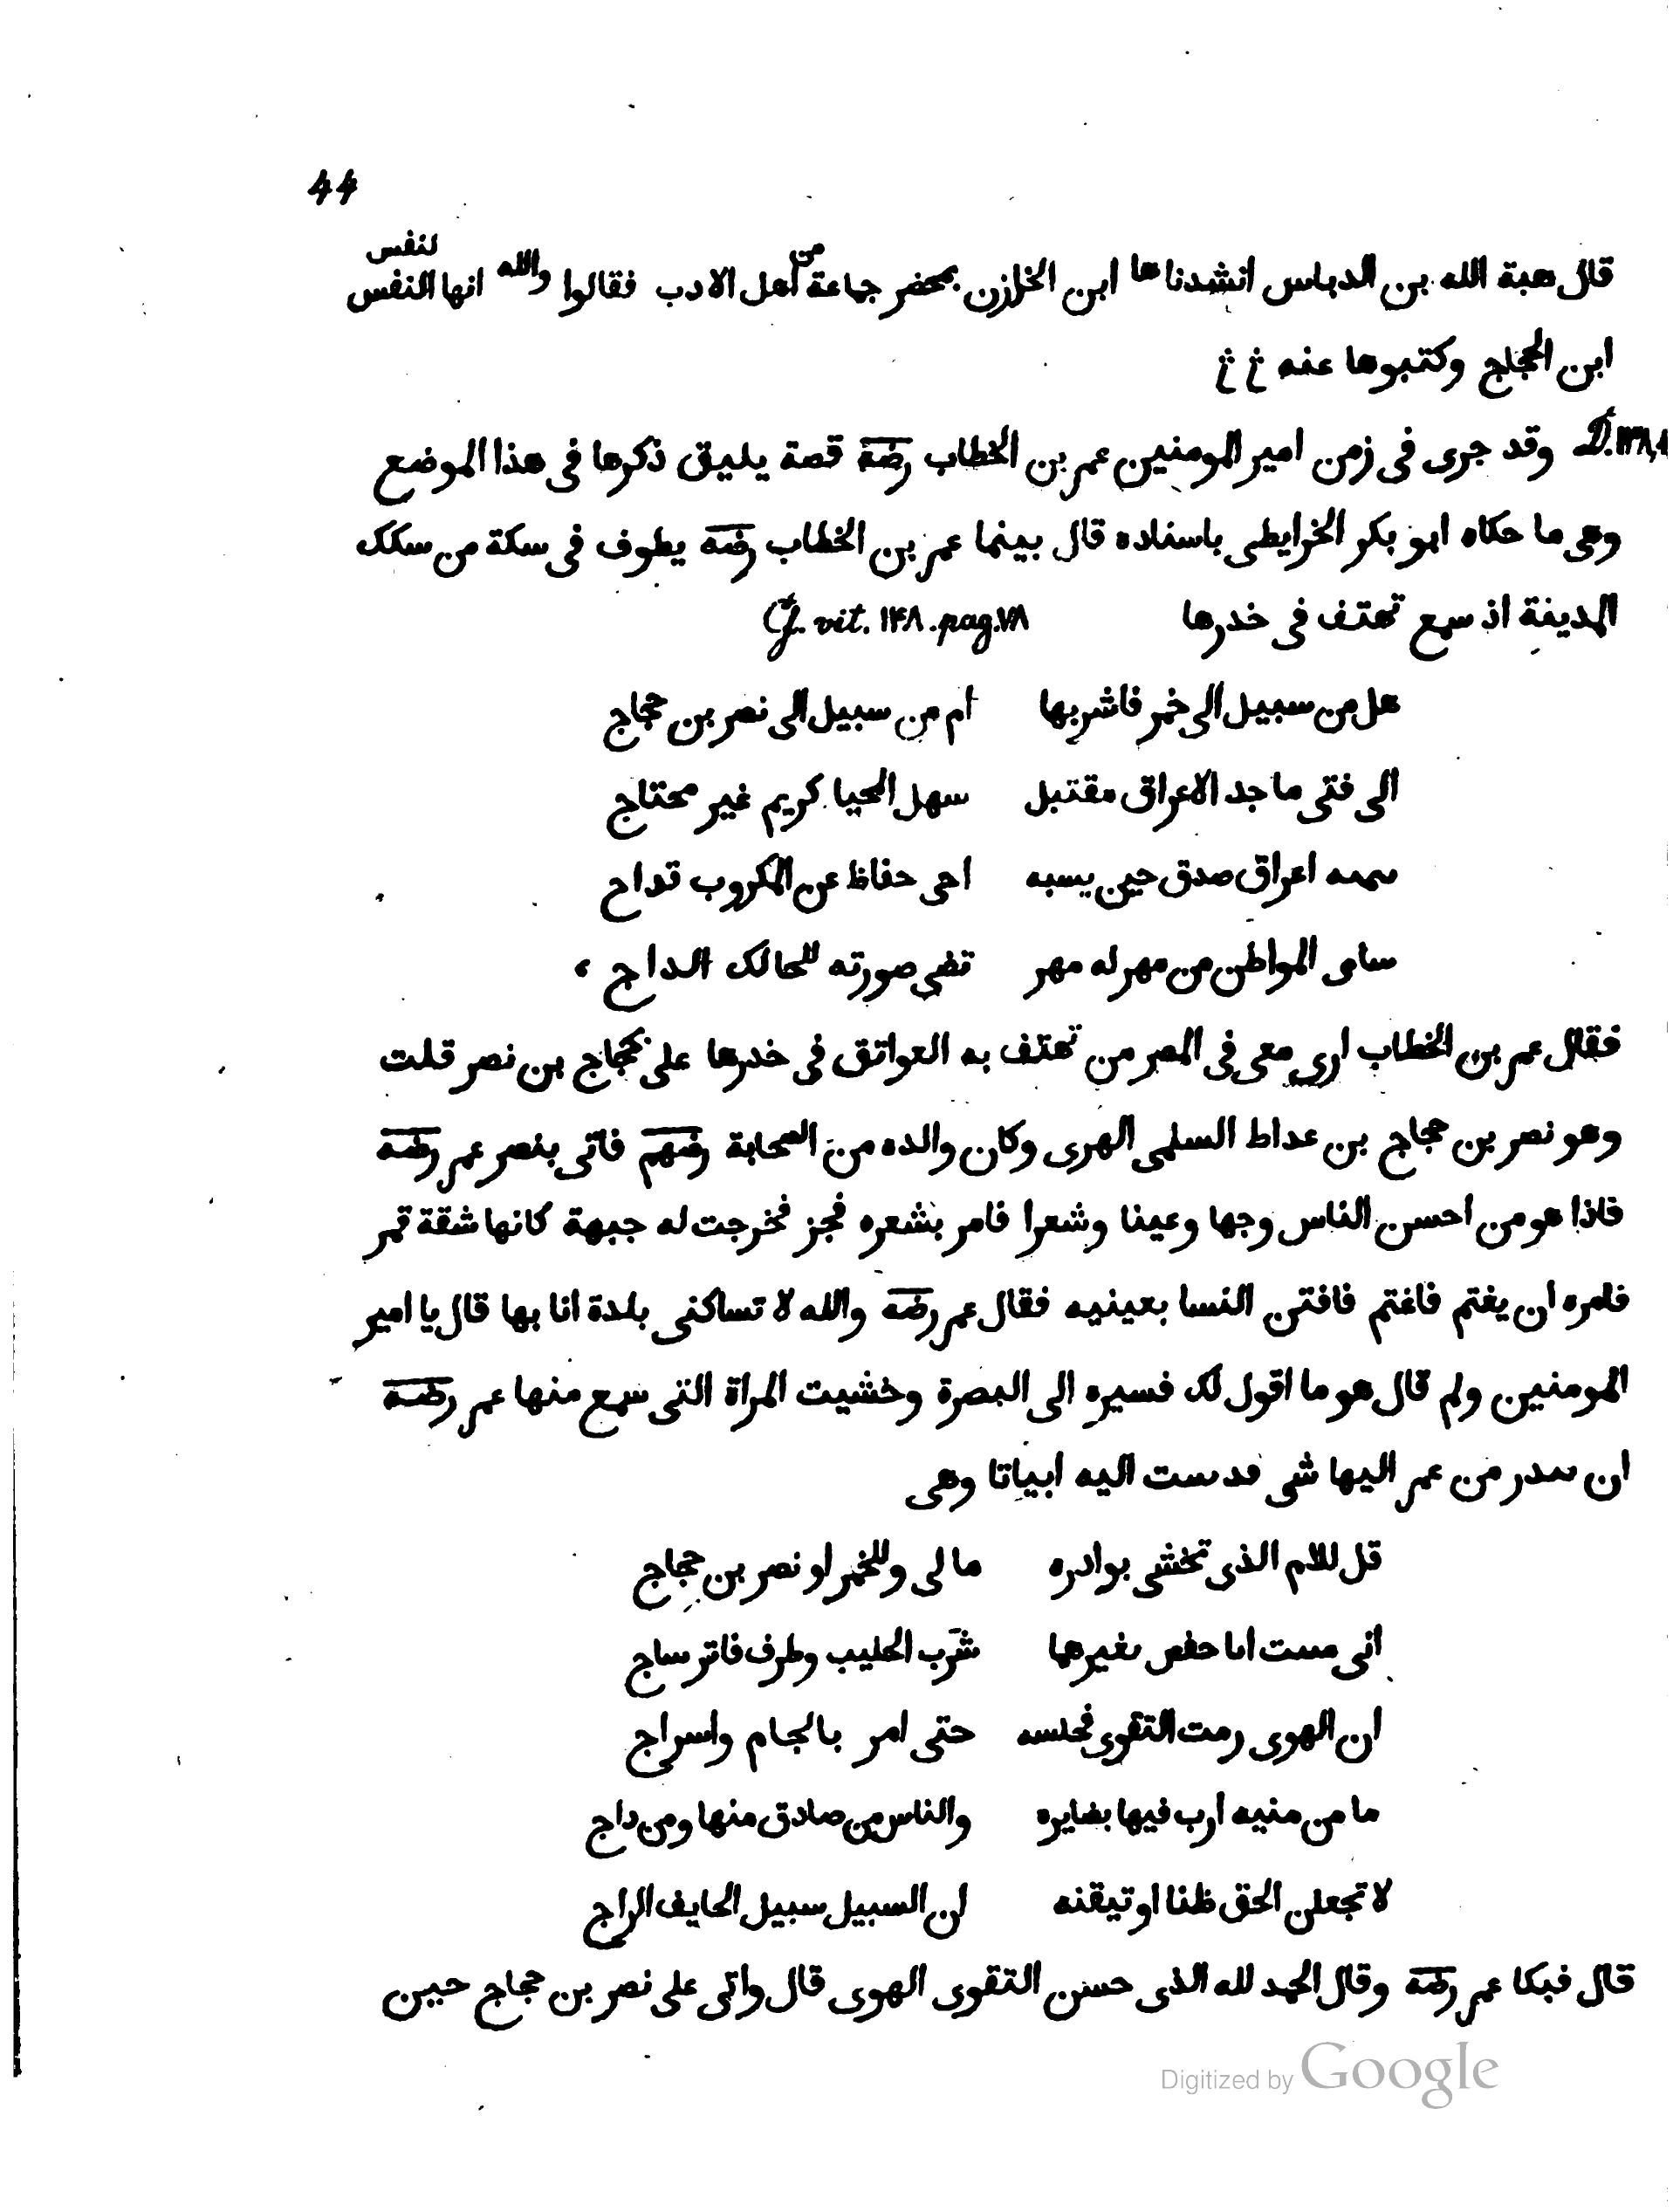 44
لنفس
قال هبة الله بن الدباس انشدناها ابن الخازن بمحضر جماعة من اهل الادب فقالوا والله انها النفس
ابن الحجاج وكتبوها عنه
وقد جرى فى زمن امير المومنين عمر بن الخطاب رضه قصة يليق ذكرها فى هذا الموضع
وهى ما حكاه ابو بكر الخرايطى باسناده قال بينما عمر بن الخطاب رضه يطوف فى سكة من سكك
المدينة اذ سمع تهتف فى خدرها Cf. vit. ۱۴۸. pag. ۷۸
هل من سبيل الى خمر فاشربها ام من سبيل الى نصر بن حجاج
الى فتى ماجد الاعراق مقتبل سهل المحيا كريم غير محتاج
اعراق صدق حين يسبه احى حفاظ عن المكروب قداح
سامى المواطن من مهر له مهر تضى صورته للحالك الداج
فقال عمر بن الخطاب ارى معى فى المصر من تهتف به العواتق فى خدرها على بحجاج بن نصر قلت
وهو نصر بن حجاج بن عداط السلمى الهرى وكان والده من الصحابة رضهم فاتى بنصر عمر رضه
فاذا هو من احسن الناس وجها وعينا وشعرا فامر بشعره فجز فخرجت له جبهة كانها شقة قمر
فامره ان يغتم فاغتم فافتن النسا بعينيه فقال عمر رضه والله لا تساكنى بلدة انا بها قال يا امير
المومنين ولم قال هو ما اقول لك فسيره الى البصرة وخشيت المراة التى سمع منها عمر رضه
ان من عمر اليها شى اليه ابياتا وهى
قل للامم الذى تخشى بوادره ما لى وللخمر او نصر بن حجاج
انى حفص بغيرهما شرب الحليب وطرف فاتر ساج
ان الهوى رمت التقوى حتى امر بالجام واسراج
ما من منيه ارب فيها بضايره والناس من صادق منها ومن داج
لا تجعلن الحق ظنا او تيقنه ان السبيل سبيل الحايف الراج
قال فبكا عمر رضه وقال الحمد لله الذى حسن التقوى الهوى قال واتى على نصر بن حجاج حين
Digitized by Google